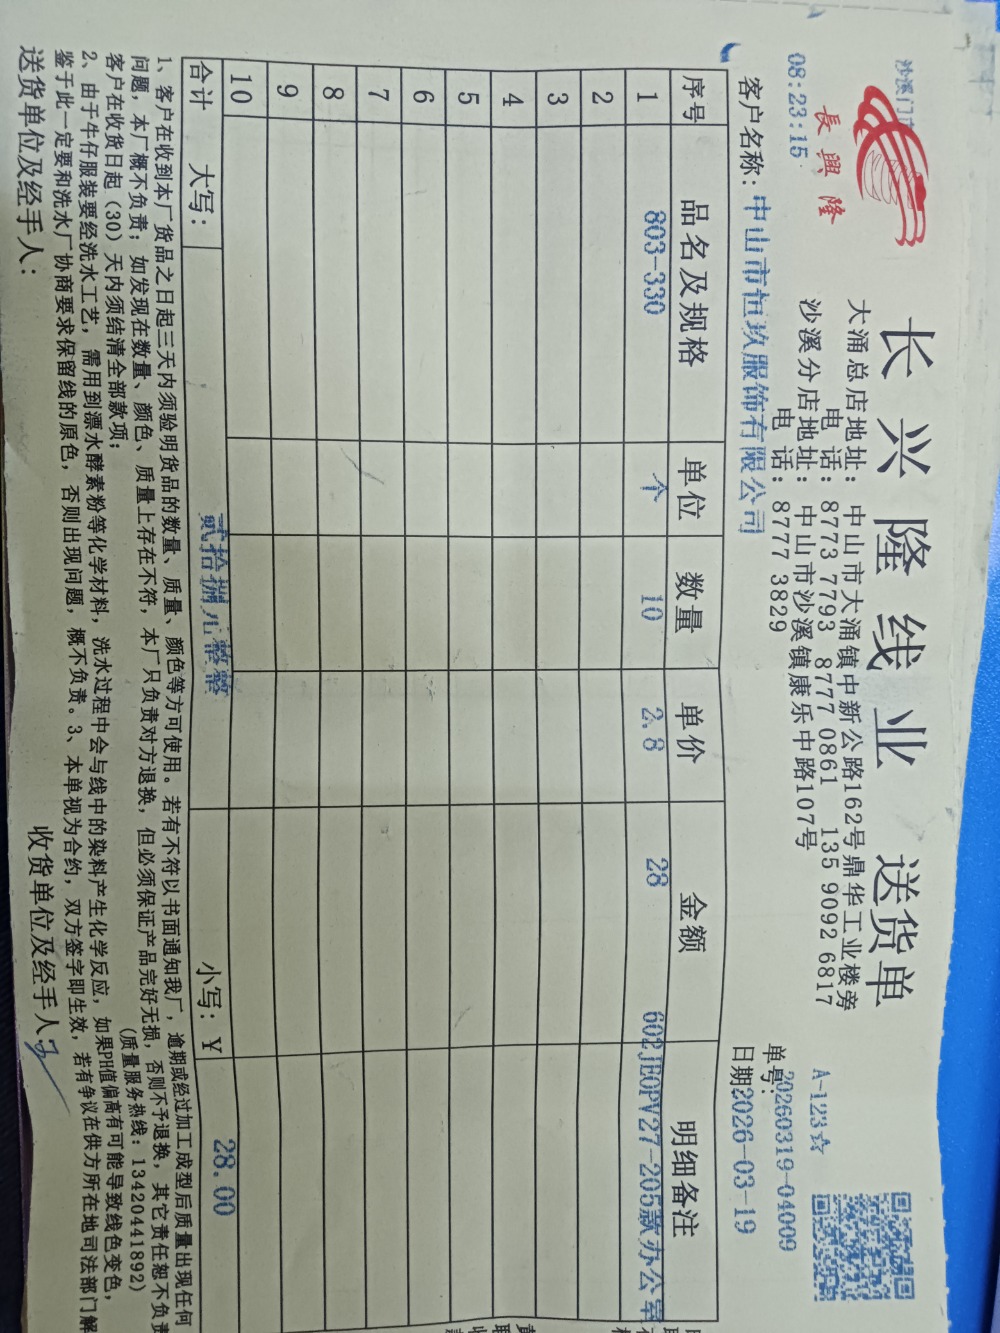 沙溪门市
08:23:15
長興隆
长兴隆线业 送货单
大涌总店地址:中山市大涌镇中新公路162号鼎华工业楼旁
电话:8773 7793 8777 0861 135 9092 6817
沙溪分店地址:中山市沙溪镇康乐中路107号
电话:8777 3829
A-123☆
单号:20260319-04009
客户名称:中山市恒玖服饰有限公司
日期2026-03-19
序号 品名及规格 单位 数量 单价 金额 明细备注
1 803-330 个 10 2.8 28 602JEOPV27-205款办公室
2
3
4
5
6
7
8
9
10
合计 大写: 贰拾捌元整整 小写:¥ 28.00
1、客户在收到本厂货品之日起三天内须验明货品的数量、质量、颜色等方可使用。若有不符以书面通知我厂,逾期或经过加工成型后质量出现任何
问题,本厂概不负责;如发现在数量、颜色、质量上存在不符,本厂只负责对方退换,但必须保证产品完好无损,否则不予退换,其它责任恕不负责
客户在收货日起(30)天内须结清全部款项; (质量服务热线:13420441892)
2、由于牛仔服装要经洗水工艺,需用到漂水酵素粉等化学材料,洗水过程中会与线中的染料产生化学反应,如果PH值偏高有可能导致线色变色,
鉴于此一定要和洗水厂协商要求保留线的原色,否则出现问题,概不负责。3、本单视为合约,双方签字即生效,若有争议在供方所在地司法部门解
送货单位及经手人: 收货单位及经手人: